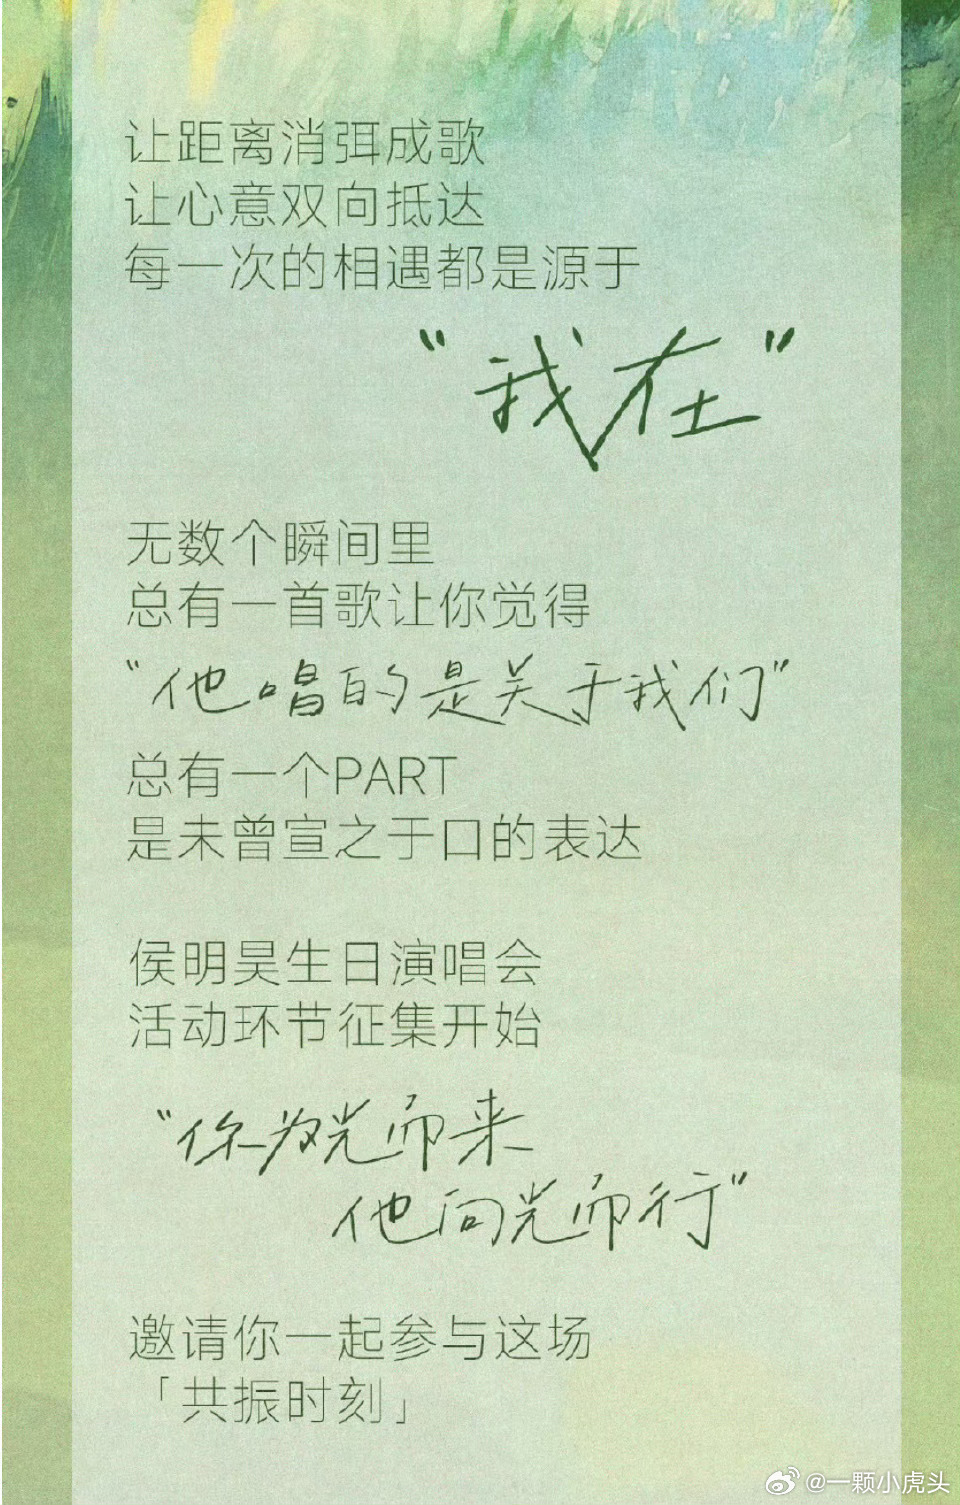 让距离消弭成歌
让心意双向抵达
每一次的相遇都是源于
“我在”
无数个瞬间里
总有一首歌让你觉得
“他唱的是关于我们”
总有一个PART
是未曾宣之于口的表达
侯明昊生日演唱会
活动环节征集开始
“你为光而来
他向光而行”
邀请你一起参与这场
「共振时刻」
@一颗小虎头